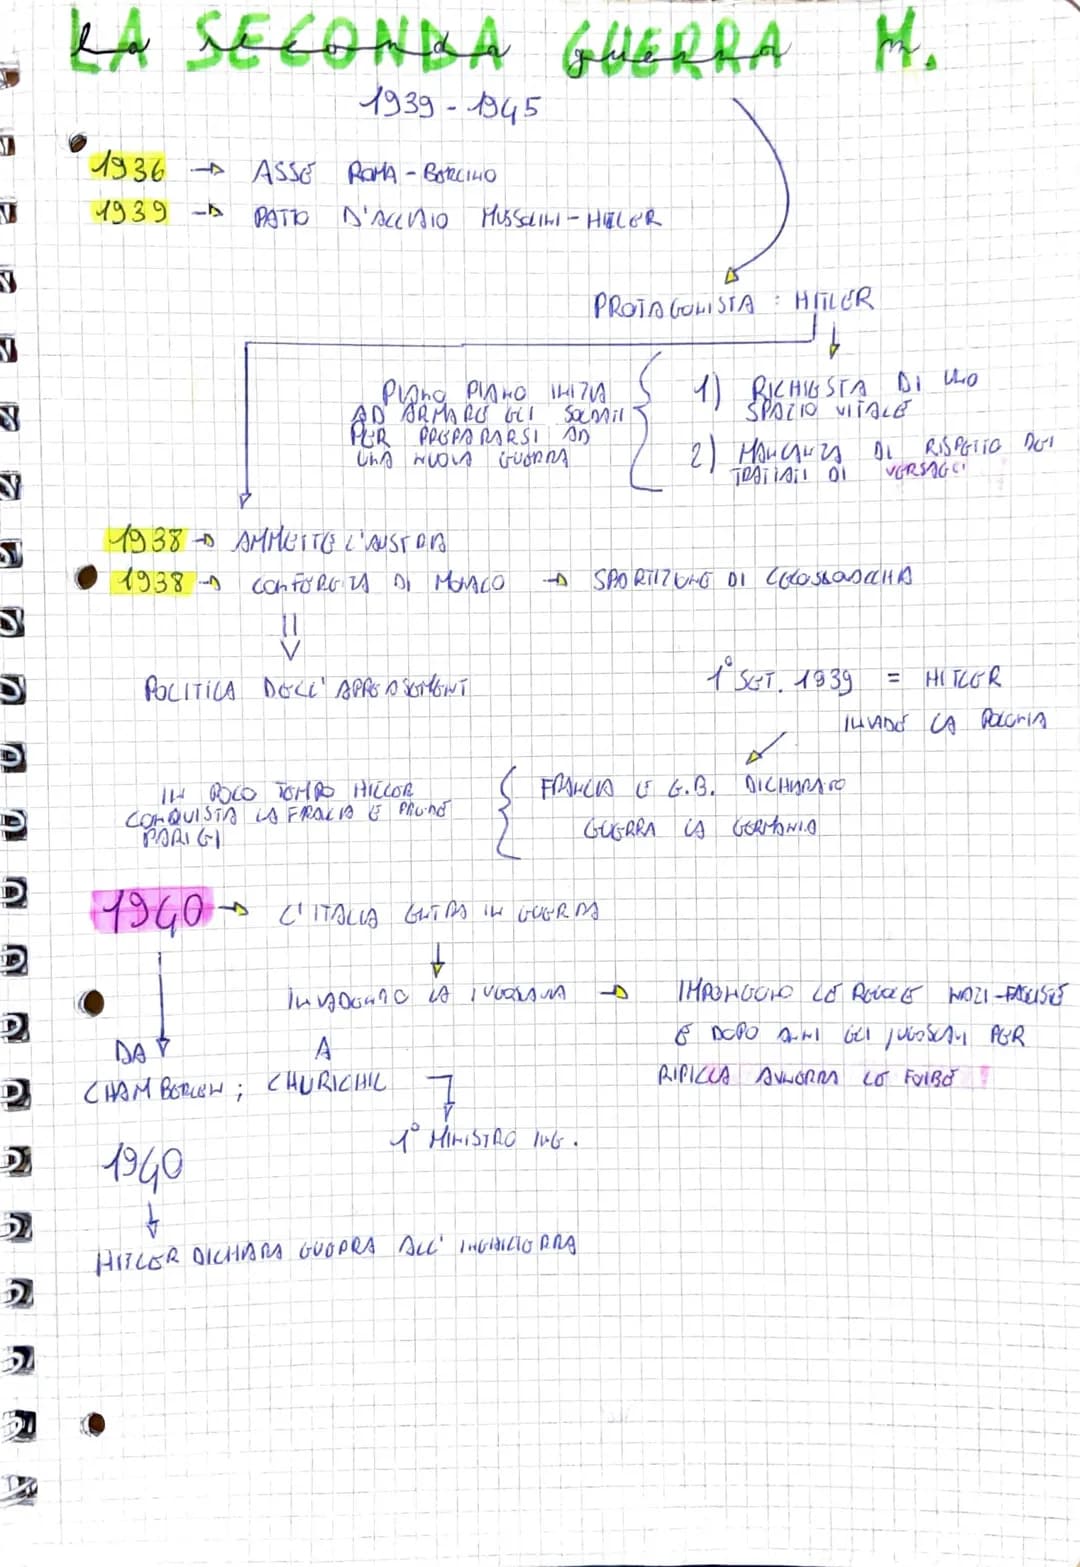 LA SECONDA GUERRA M.
1939 - 1945
1936 → ASSE ROMA - BERLINO
1939 → PATTO D'ACCIAIO MUSSOLINI - HITLER
PROTAGONISTA : HITLER
PIANO PIANO INIZIA
AD ARMARE GLI SOLDATI
PER PREPARARSI AD
UNA NUOVA GUERRA
1) RICHIESTA DI UNO
SPAZIO VITALE
2) MANCANZA DI RISPETTO DEI
TRATTATI DI VERSAGLI
1938 → AMMETTE L'AUSTRIA
1938 → CONFERENZA DI MONACO → SPARTIZIONE DI
POLITICA DELL' APPEASEMENT
1° SET. 1939 = HITLER
INVADE LA POLONIA
FRANCIA E G.B. DICHIARANO
GUERRA LA GERMANIA
IN POCO TEMPO HITLER
CONQUISTA LA FRACIA E PRENDE
PARIGI
1940 → L'ITALIA ENTRA IN GUERRA
INVADONO LA → IMPONGONO LE REGOLE NAZI-FASCISTE
E DOPO ANNI GLI JUGOSLAVI PER
RIPICCA LE FOIBE !
DA A
CHAMBERLEN ; CHURICHIL
1° MINISTRO ING.
1940
HITLER DICHIARA GUERRA ALL' INGHILTERRA